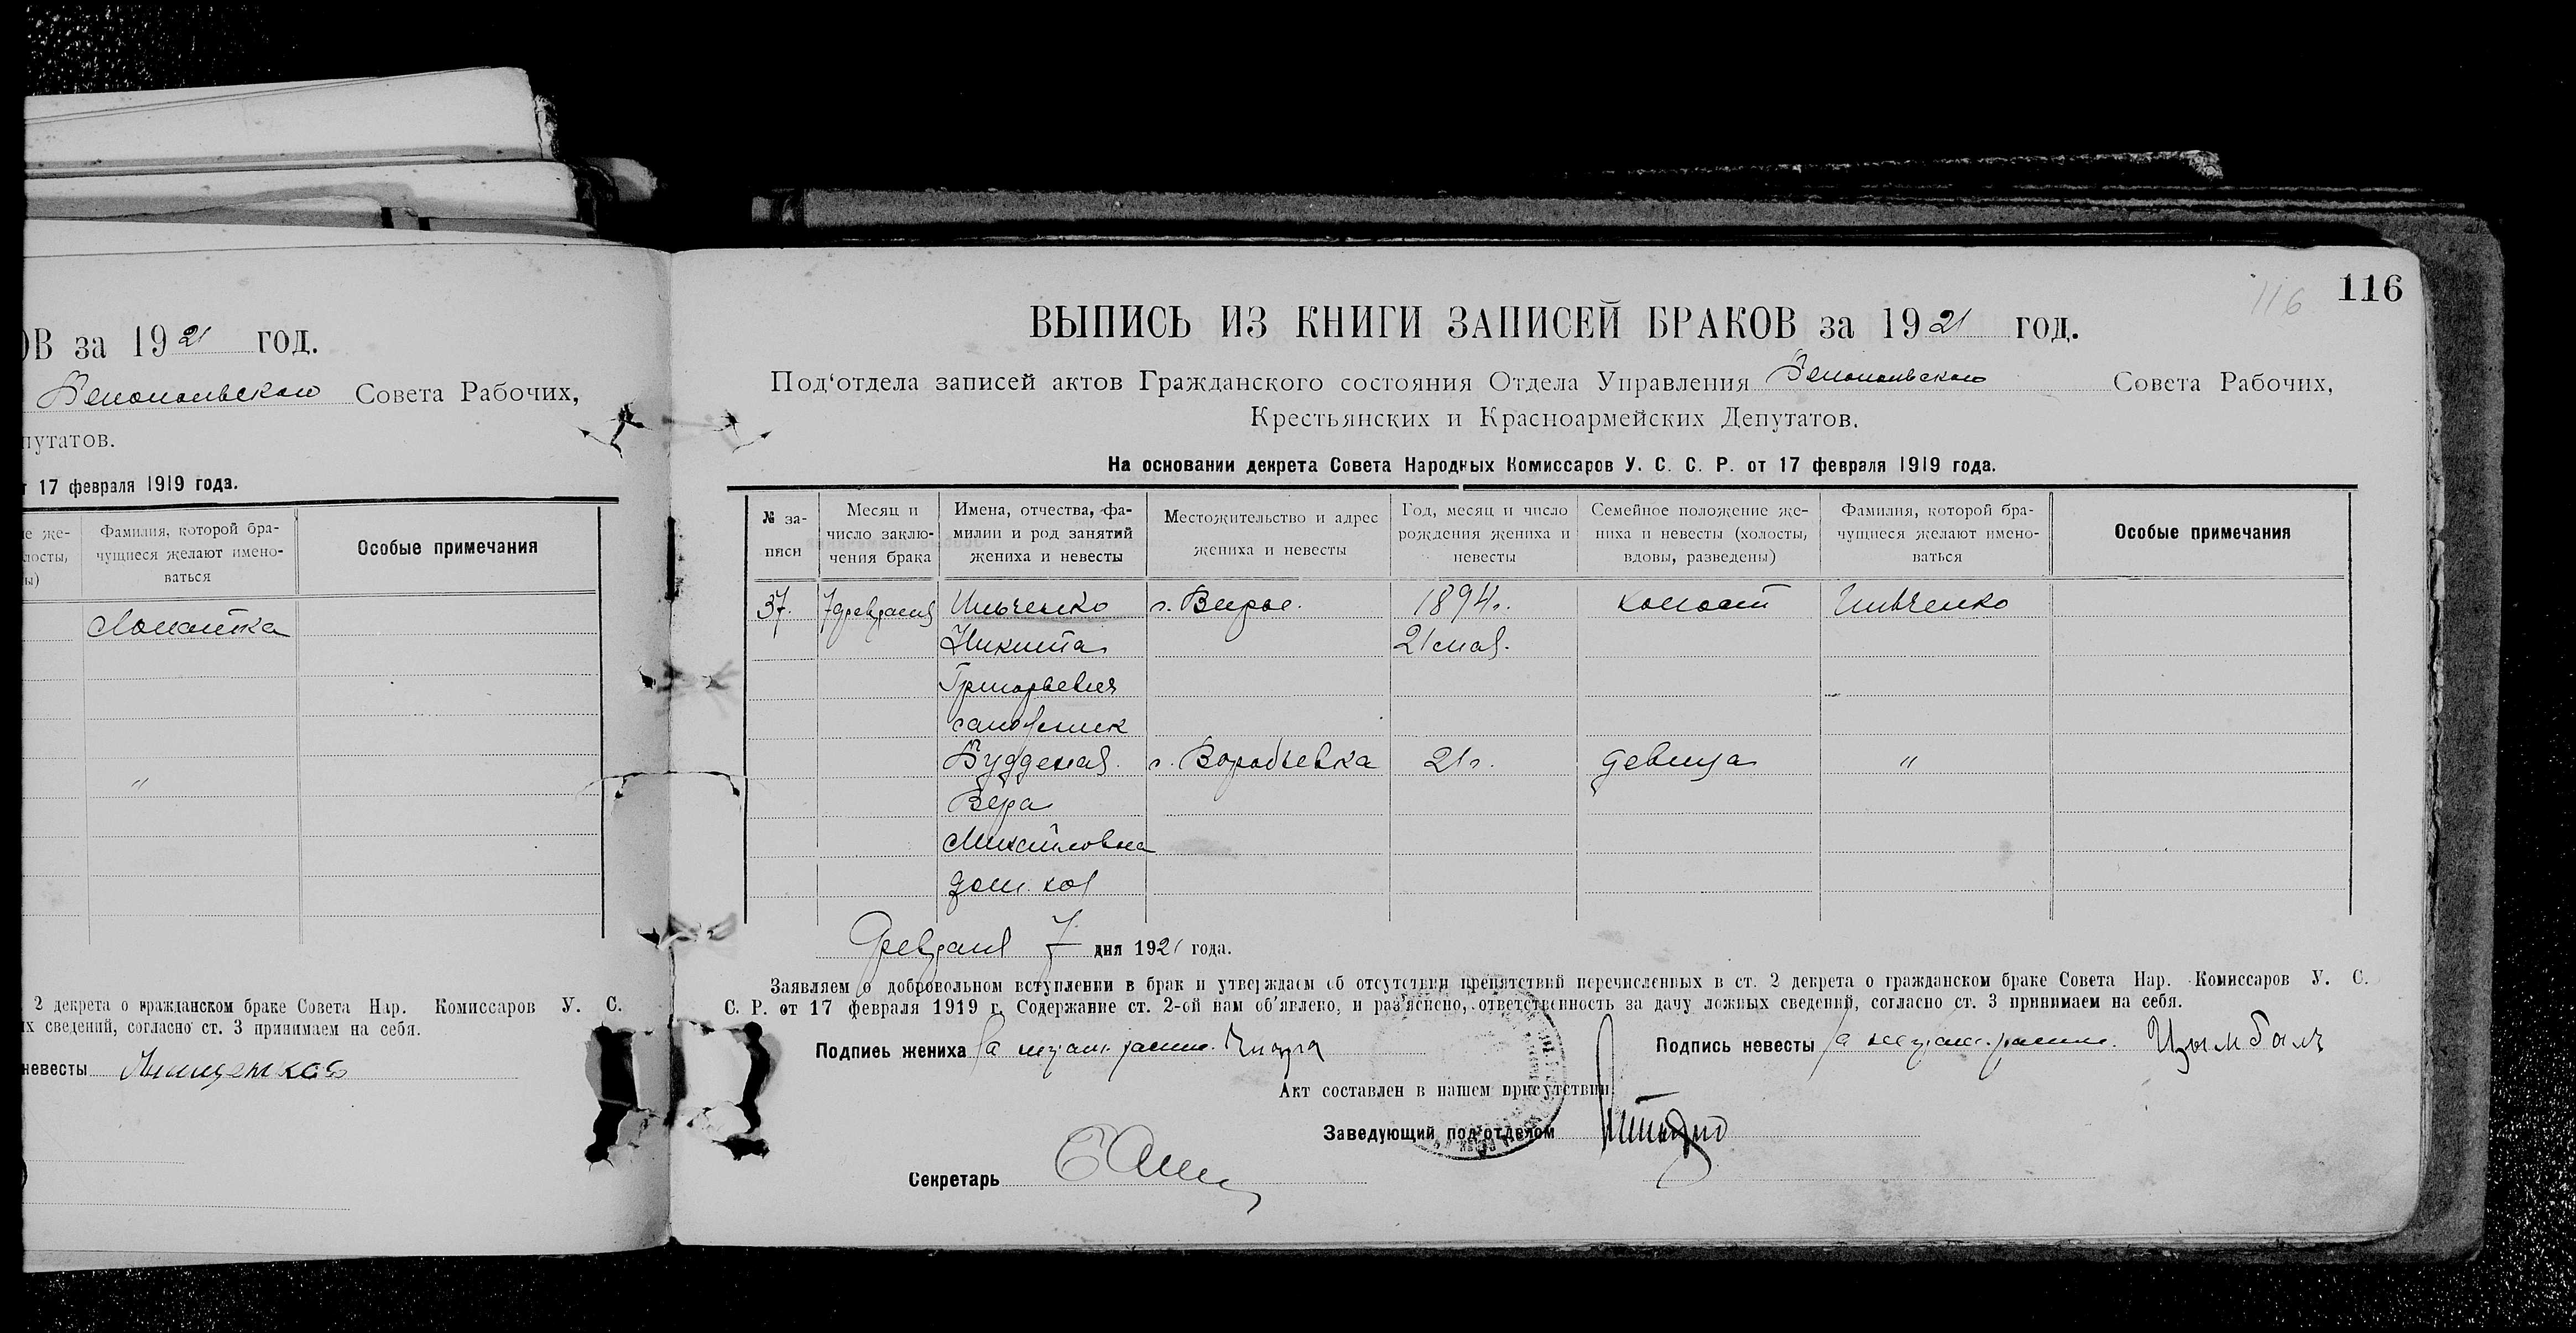 ОВ за 1921 год.
Белопольского Совета Рабочих,
путатов.
т 17 февраля 1919 года.
е же-
лости,
ы)
Фамилия, которой бра-
чущиеся желают имено-
ваться
Особые примечания
Лопатка
"
2 декрета о гражданском браке Совета Нар. Комиссаров У. С.
х сведений, согласно ст. 3 принимаем на себя.
невесты
116
116
ВЫПИСЬ ИЗ КНИГИ ЗАПИСЕЙ БРАКОВ за 1921 год.
Под'отдела записей актов Гражданского состояния Отдела Управления Белопольского Совета Рабочих,
Крестьянских и Красноармейских Депутатов.
На основании декрета Совета Народных Комиссаров У. С. С. Р. от 17 февраля 1919 года.
№ за-
писи
Месяц и
число заклю-
чения брака
Имена, отчества, фа-
милии и род занятий
жениха и невесты
Местожительство и адрес
жениха и невесты
Год, месяц и число
рождения жениха и
невесты
Семейное положение же-
ниха и невесты (холосты,
вдовы, разведены)
Фамилия, которой бра-
чущиеся желают имено-
ваться
Особые примечания
37. 7 февраля Ильченко с. Вирое. 1894 г. холост Ильченко
Никита 21 мая.
Григорьевич
сапожник
Будденая. с. Воробьевка 21 г. девица "
Вера
Михайловна
дом. хоз
Февраля 7 дня 1921 года.
Заявляем о добровольном вступлении в брак и утверждаем об отсутствии препятствий перечисленных в ст. 2 декрета о гражданском браке Совета Нар. Комиссаров У. С.
С. Р. от 17 февраля 1919 г. Содержание ст. 2-ой нам об'явлено, и раз'яснено, ответственность за дачу ложных сведений, согласно ст. 3 принимаем на себя.
Подпиеь жениха за неграм. распис.
Подпись невесты за неграм. распис. Цымбалъ
Акт составлен в нашем присутствии
Заведующий под'отделом
Секретарь